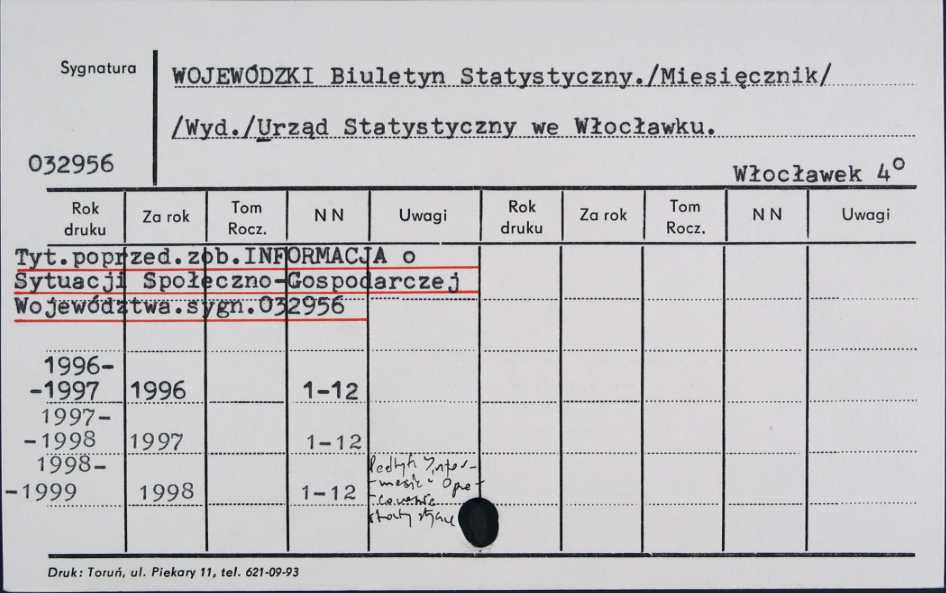 Sygnatura
WOJEWÓDZKI Biuletyn Statystyczny./Miesięcznik/
/Wyd./Urząd Statystyczny we Włocławku.
032956
Włocławek 4°
Rok druku Za rok Tom Rocz. NN Uwagi Rok druku Za rok Tom Rocz. NN Uwagi
Tyt.poprzed.zob.INFORMACJA o
Sytuacji Społeczno-Gospodarczej
Województwa.sygn.032956
1996-
-1997 1996 1-12
1997-
-1998 1997 1-12
1998-
-1999 1998 1-12
Podtyt: Infor-
-macje i Opra-
-cowania
staty styczne
Druk: Toruń, ul. Piekary 11, tel. 621-09-93